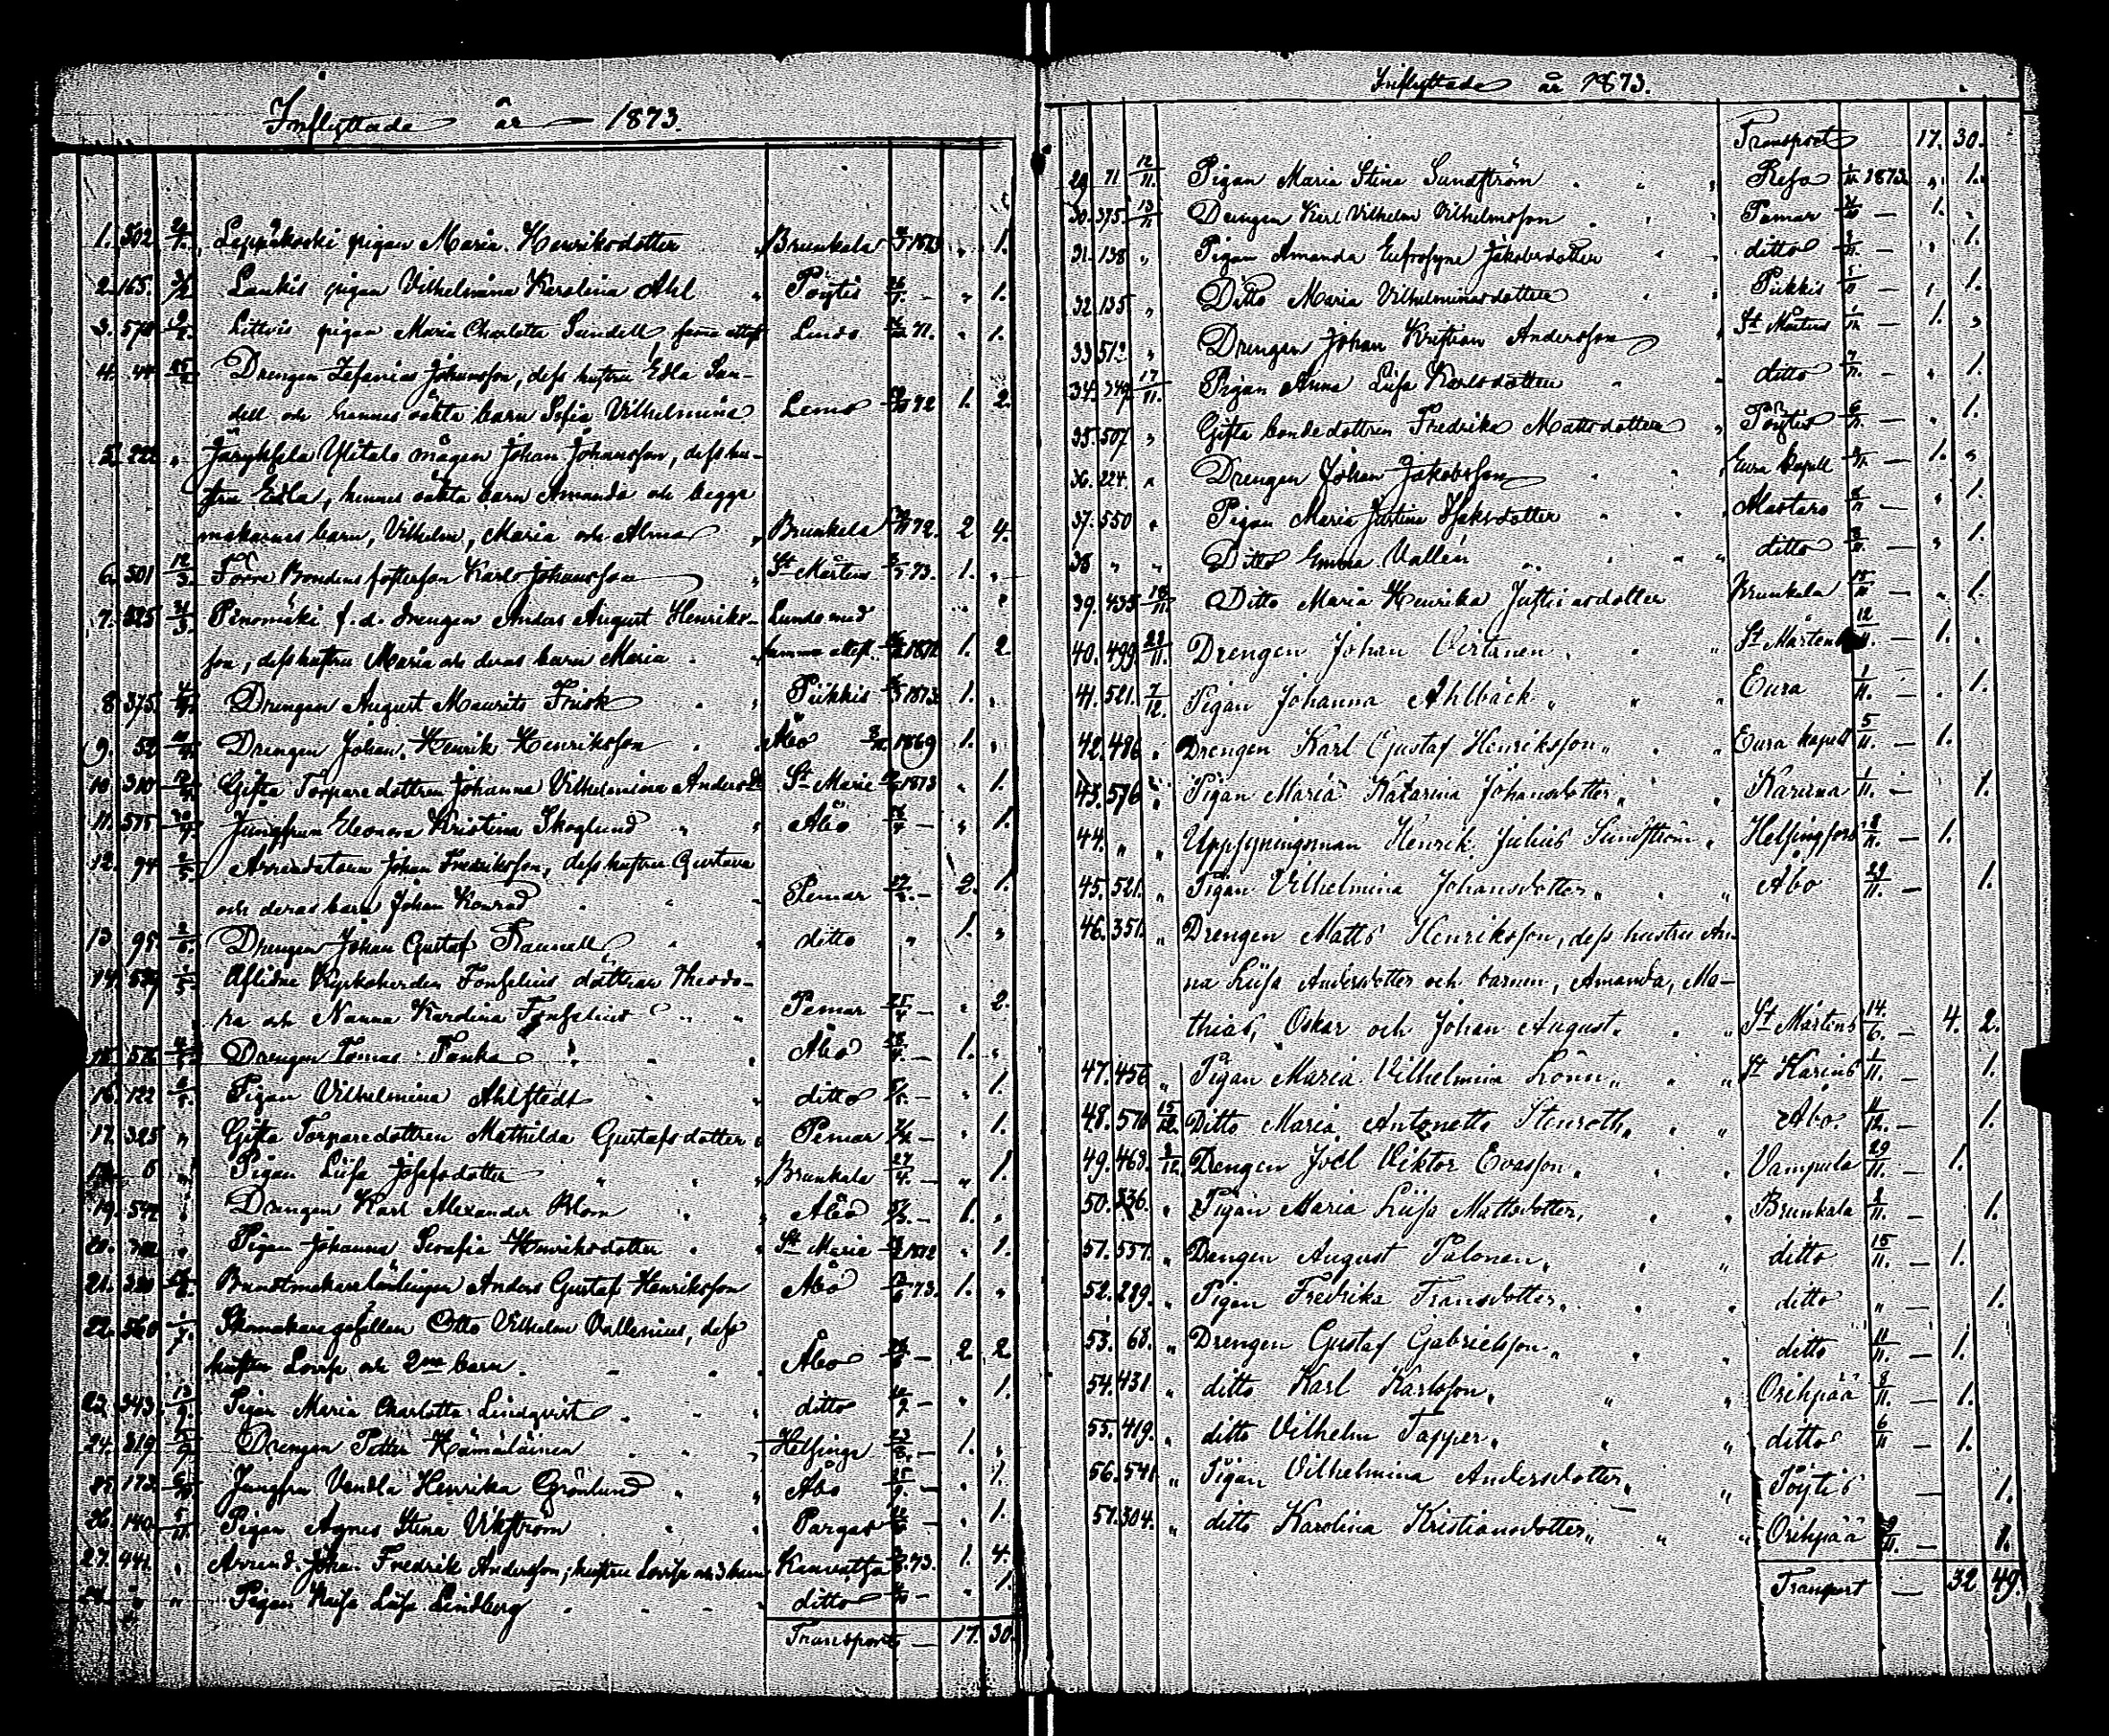 Inflyttade år 1873.
1. 502. Leppäkoski pigan Maria Henriksdotter " Brunkala 1873 " 1.
2. 165. Laukis pigan Vilhelmina Karolina Ahl " Pöytis — " 1.
3. 570 Littois pigan Maria Charlotta Sundell, Lundo 71. " 1.
4. 44 Drengen Zefanias Johansson, dess hustru Edla Sun-
dell och hennes oäkta barn Sofia Vilhelmina Lemo 72 1. 2.
5. 222 " Ylitalo mågen Johan Johansson, dess hu-
stru Edla, hennes oäkta barn Amanda och begge
makarnes barn, Vilhelm, Maria och Alma " Brunkala 72. 2 4.
6. 501 12/3. Bondens fosterson Karl Johansson " St Mårtens 73. 1. "
7. 325 Pinomäki f. d. drengen Anders August Henriks- Lundo med
son, dess hustru Maria och deras barn Maria samma attest. 1872 1. 2
8 375. Drengen August Maurits Frisk " Piikkis 1873 1. "
9. 52 Drengen Johan Henrik Henriksson Åbo 1869 1. "
10 310 Gifta Torparedottren Johanna Vilhelmina Andersd. St Marie 1873 " 1.
11. 575 Jungfrun Eleonora Kristina Skoglund " " Åbo — " 1.
12. 94 Arrendatoren Johan Fredriksson, dess hustru Gustava
och deras barn Johan Konrad Pemar — 2. 1.
13. 95. Drengen Johan Gustaf " ditto " 1. "
14. Aflidne Kyrkoherden Fonselius döttrar Theodo-
ra och Nanna Karolina Fonselius " " Pemar 25/4 — " 2.
15. 576 Drengen Tomas Åbo — 1. "
16. 122 Pigan Vilhelmina Ahlstedt " ditto — " 1.
17. 325 " Gifta Torparedottren Mathilda Gustafsdotter " Pemar — " 1.
6 " Pigan Liisa Josefsdotter " " Brunkala 27/4. — " 1.
19. 542 " Drengen Karl Alexander Blom " Åbo — 1. "
20. " Pigan Johanna Serafia Henriksdotter " St Marie 1872 " 1.
21. Buntmakarelärlingen Anders Gustaf Henriksson Åbo 73. 1. "
22. 560 Skomakaregesällen Otto Vilhelm Vallenius, dess
hustru Lovisa och 2ne barn. Åbo — 2. 2
23. 343 13/7. Pigan Maria Charlotta Lindqvist " ditto — " 1.
24. 319 Drengen Petter Hämäläinen " Helsinge — 1. "
25. 173. Jungfru Vendla Henrika Grönlund " " Åbo — " 1.
26. 140 5/11. Pigan Agnes Stina Vikström " Pargas — " 1.
27. 441. " Arrend. Johan Fredrik Andersson, hustru Lovisa och 3 barn 73. 1. 4.
28. " " Pigan Kaisa Liisa Lindberg " ditto — " 1.
Transport — 17. 30.
Inflyttade år 1873.
Transport 17. 30.
29 71 12/11. Pigan Maria Stina Sundström " " Reso 1873 " 1.
30. 375. 13/11 Drengen Karl Vilhelm Vilhelmsson " Pemar — 1. "
31. 138 " Pigan Amanda Eufrosyne Jakobsdotter " ditto — " 1.
32. 135 " Ditto Maria Vilhelminasdotter " Piikkis 5/11 — " 1.
33 512 " Drengen Johan Kristian Andersson " St Mårtens — 1. "
34. 349. 17/11. Pigan Anna Liisa Karlsdotter " " ditto 7/11. — " 1.
35. 507. " Gifta bondedottren Fredrika Mattsdotter " Pöytis 6/11. — " 1.
36. 224. " Drengen Johan Jakobsson " Eura kapell — 1. "
37. 550 " Pigan Maria Justina Isaksdotter " " Alastaro 8/11 — " 1.
38 " " Ditto Emma Vallén " " ditto 8/11. — " 1.
39. 435 18/11. Ditto Maria Henrika Justinasdotter Brunkala 15/11 — " 1.
40. 499. 22/11. Drengen Johan Virtanen. " " St Mårtens 12/11. — 1. "
41. 521. 7/12. Pigan Johanna Ahlbäck " " " Eura 1/11. — " 1.
42. 486 " Drengen Karl Gustaf Henriksson " " " Eura kapell 5/11. — 1.
43. 576 " Pigan Maria Katarina Johansdotter " " " Karuna 1/11. — 1.
44. " " Uppsyningsman Henrik Julius Sundström " Helsingfors 8/11. — 1.
45. 521. " Pigan Vilhelmina Johansdotter " " " Åbo 29/11. — 1.
46. 351. " Drengen Matts Henriksson, dess hustru An-
na Liisa Andersdotter och barnen, Amanda, Ma-
thias, Oskar och Johan August. " " St Mårtens 14/6. — 4. 2.
47. 456 " Pigan Maria Vilhelmina Lönn " " " St Karins 1/11. — 1.
48. 570 15/12. Ditto Maria Antonette Stenroth " " " Åbo 11/12. — 1.
49. 468. 8/12. Drengen Joel Viktor Evasson. " " Vampula 29/11. — 1.
50. 336. " Pigan Maria Liisa Mattsdotter, " " Brunkala 8/11. — 1.
51. 557. " Drengen August Palonen, " " ditto 15/11. — 1.
52. 289. " Pigan Fredrika Fransdotter, " " ditto " — 1.
53. 68. " Drengen Gustaf Gabrielsson " " " ditto 11/11. — 1.
54. 431. " ditto Karl Karlsson. " " Orihpää 8/11. — 1.
55. 419. " ditto Vilhelm Tapper. " " ditto 6/11 — 1.
56. 541. " Pigan Vilhelmina Andersdotter, " " Pöytis — 1.
57. 304. " ditto Karolina Kristiansdotter, " " Orihpää 9/11. — 1.
Transport — 32 49.